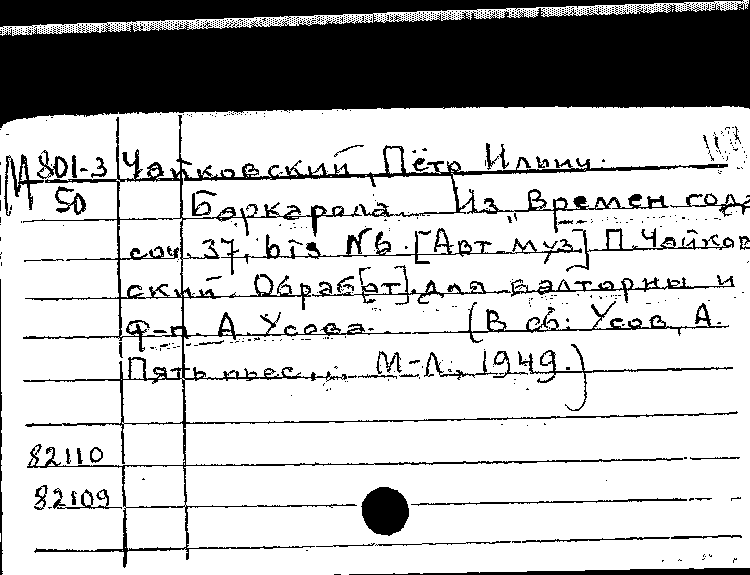 М 801-3 Чайковский, Пётр Ильич.
50 Баркарола. Из „Времен года
соч. 37, bis №6. [Авт. муз.] П. Чайков
ский. Обраб[от]. для валторны и
ф-п. А. Усова. (В сб: Усов, А.
Пять пьес... М-Л., 1949.)
82110
82109